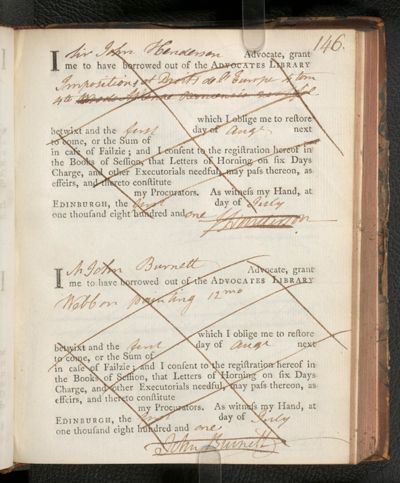 146.
I Sir John Henderson Advocate, grant
me to have borrowed out of the ADVOCATES LIBRARY
Impositions et Droits de l'Europe 4 tom
4to
which I oblige me to reſtore
betwixt and the first day of Augt next
to come, or the Sum of
in caſe of Failzie; and I conſent to the regiſtration hereof in
the Books of Seſſion, that Letters of Horning on ſix Days
Charge, and other Executorials needful, may paſs thereon, as
effeirs, and thereto conſtitute
my Procurators. As witneſs my Hand, at
EDINBURGH, the first day of July
one thouſand eight hundred and one
I Mr John Burnett Advocate, grant
me to have borrowed out of the ADVOCATES LIBRARY
on painting 12mo
which I oblige me to reſtore
betwixt and the first day of Augt next
to come, or the Sum of
in caſe of Failzie; and I conſent to the regiſtration hereof in
the Books of Seſſion, that Letters of Horning on ſix Days
Charge, and other Executorials needful, may paſs thereon, as
effeirs, and thereto conſtitute
my Procurators. As witneſs my Hand, at
EDINBURGH, the day of July
one thouſand eight hundred and one
John Burnett